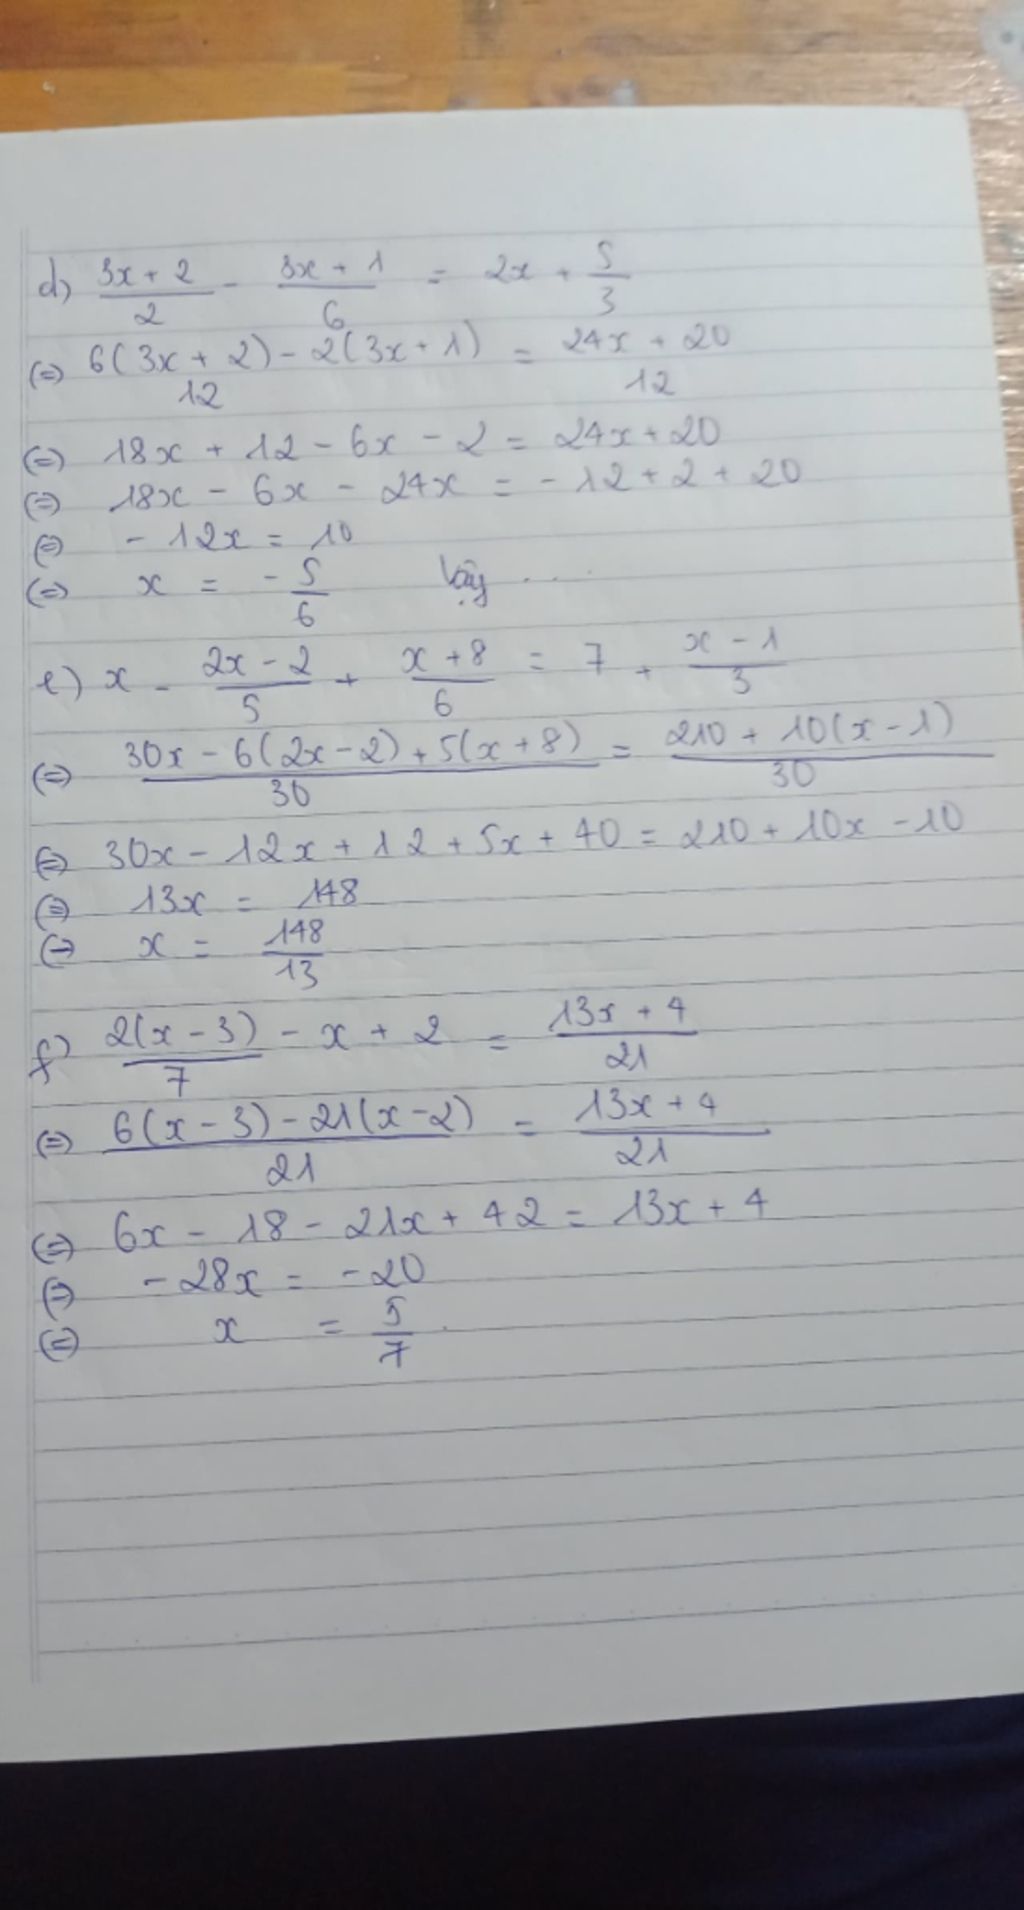 d) (3x + 2)/2 - (3x + 1)/6 = 2x + 5/3
(=) (6(3x + 2) - 2(3x + 1))/12 = (24x + 20)/12
(=) 18x + 12 - 6x - 2 = 24x + 20
(=) 18x - 6x - 24x = - 12 + 2 + 20
(=) - 12x = 10
(=) x = - 5/6 Vậy ....
e) x - (2x - 2)/5 + (x + 8)/6 = 7 + (x - 1)/3
(=) (30x - 6(2x - 2) + 5(x + 8))/30 = (210 + 10(x - 1))/30
(=) 30x - 12x + 12 + 5x + 40 = 210 + 10x - 10
(=) 13x = 148
(=) x = 148/13
f) 2(x - 3)/7 - x + 2 = (13x + 4)/21
(=) (6(x - 3) - 21(x - 2))/21 = (13x + 4)/21
(=) 6x - 18 - 21x + 42 = 13x + 4
(=) - 28x = - 20
(=) x = 5/7.